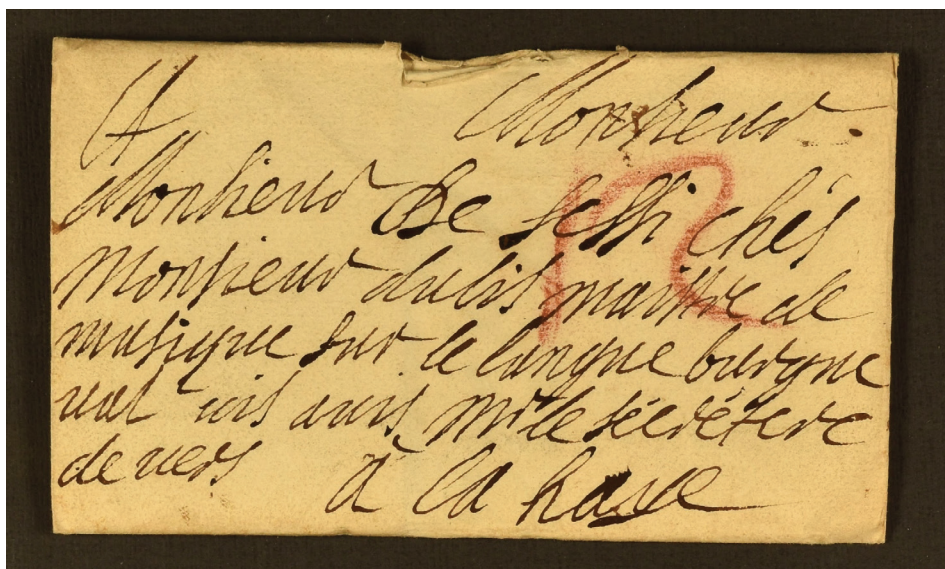 A Monsieur
Monsieur De Sessi chés
Monsieur dulis maittre de
musique sur le langue burgue
wal vis avis Mr le sécrétere
de vers à la haye